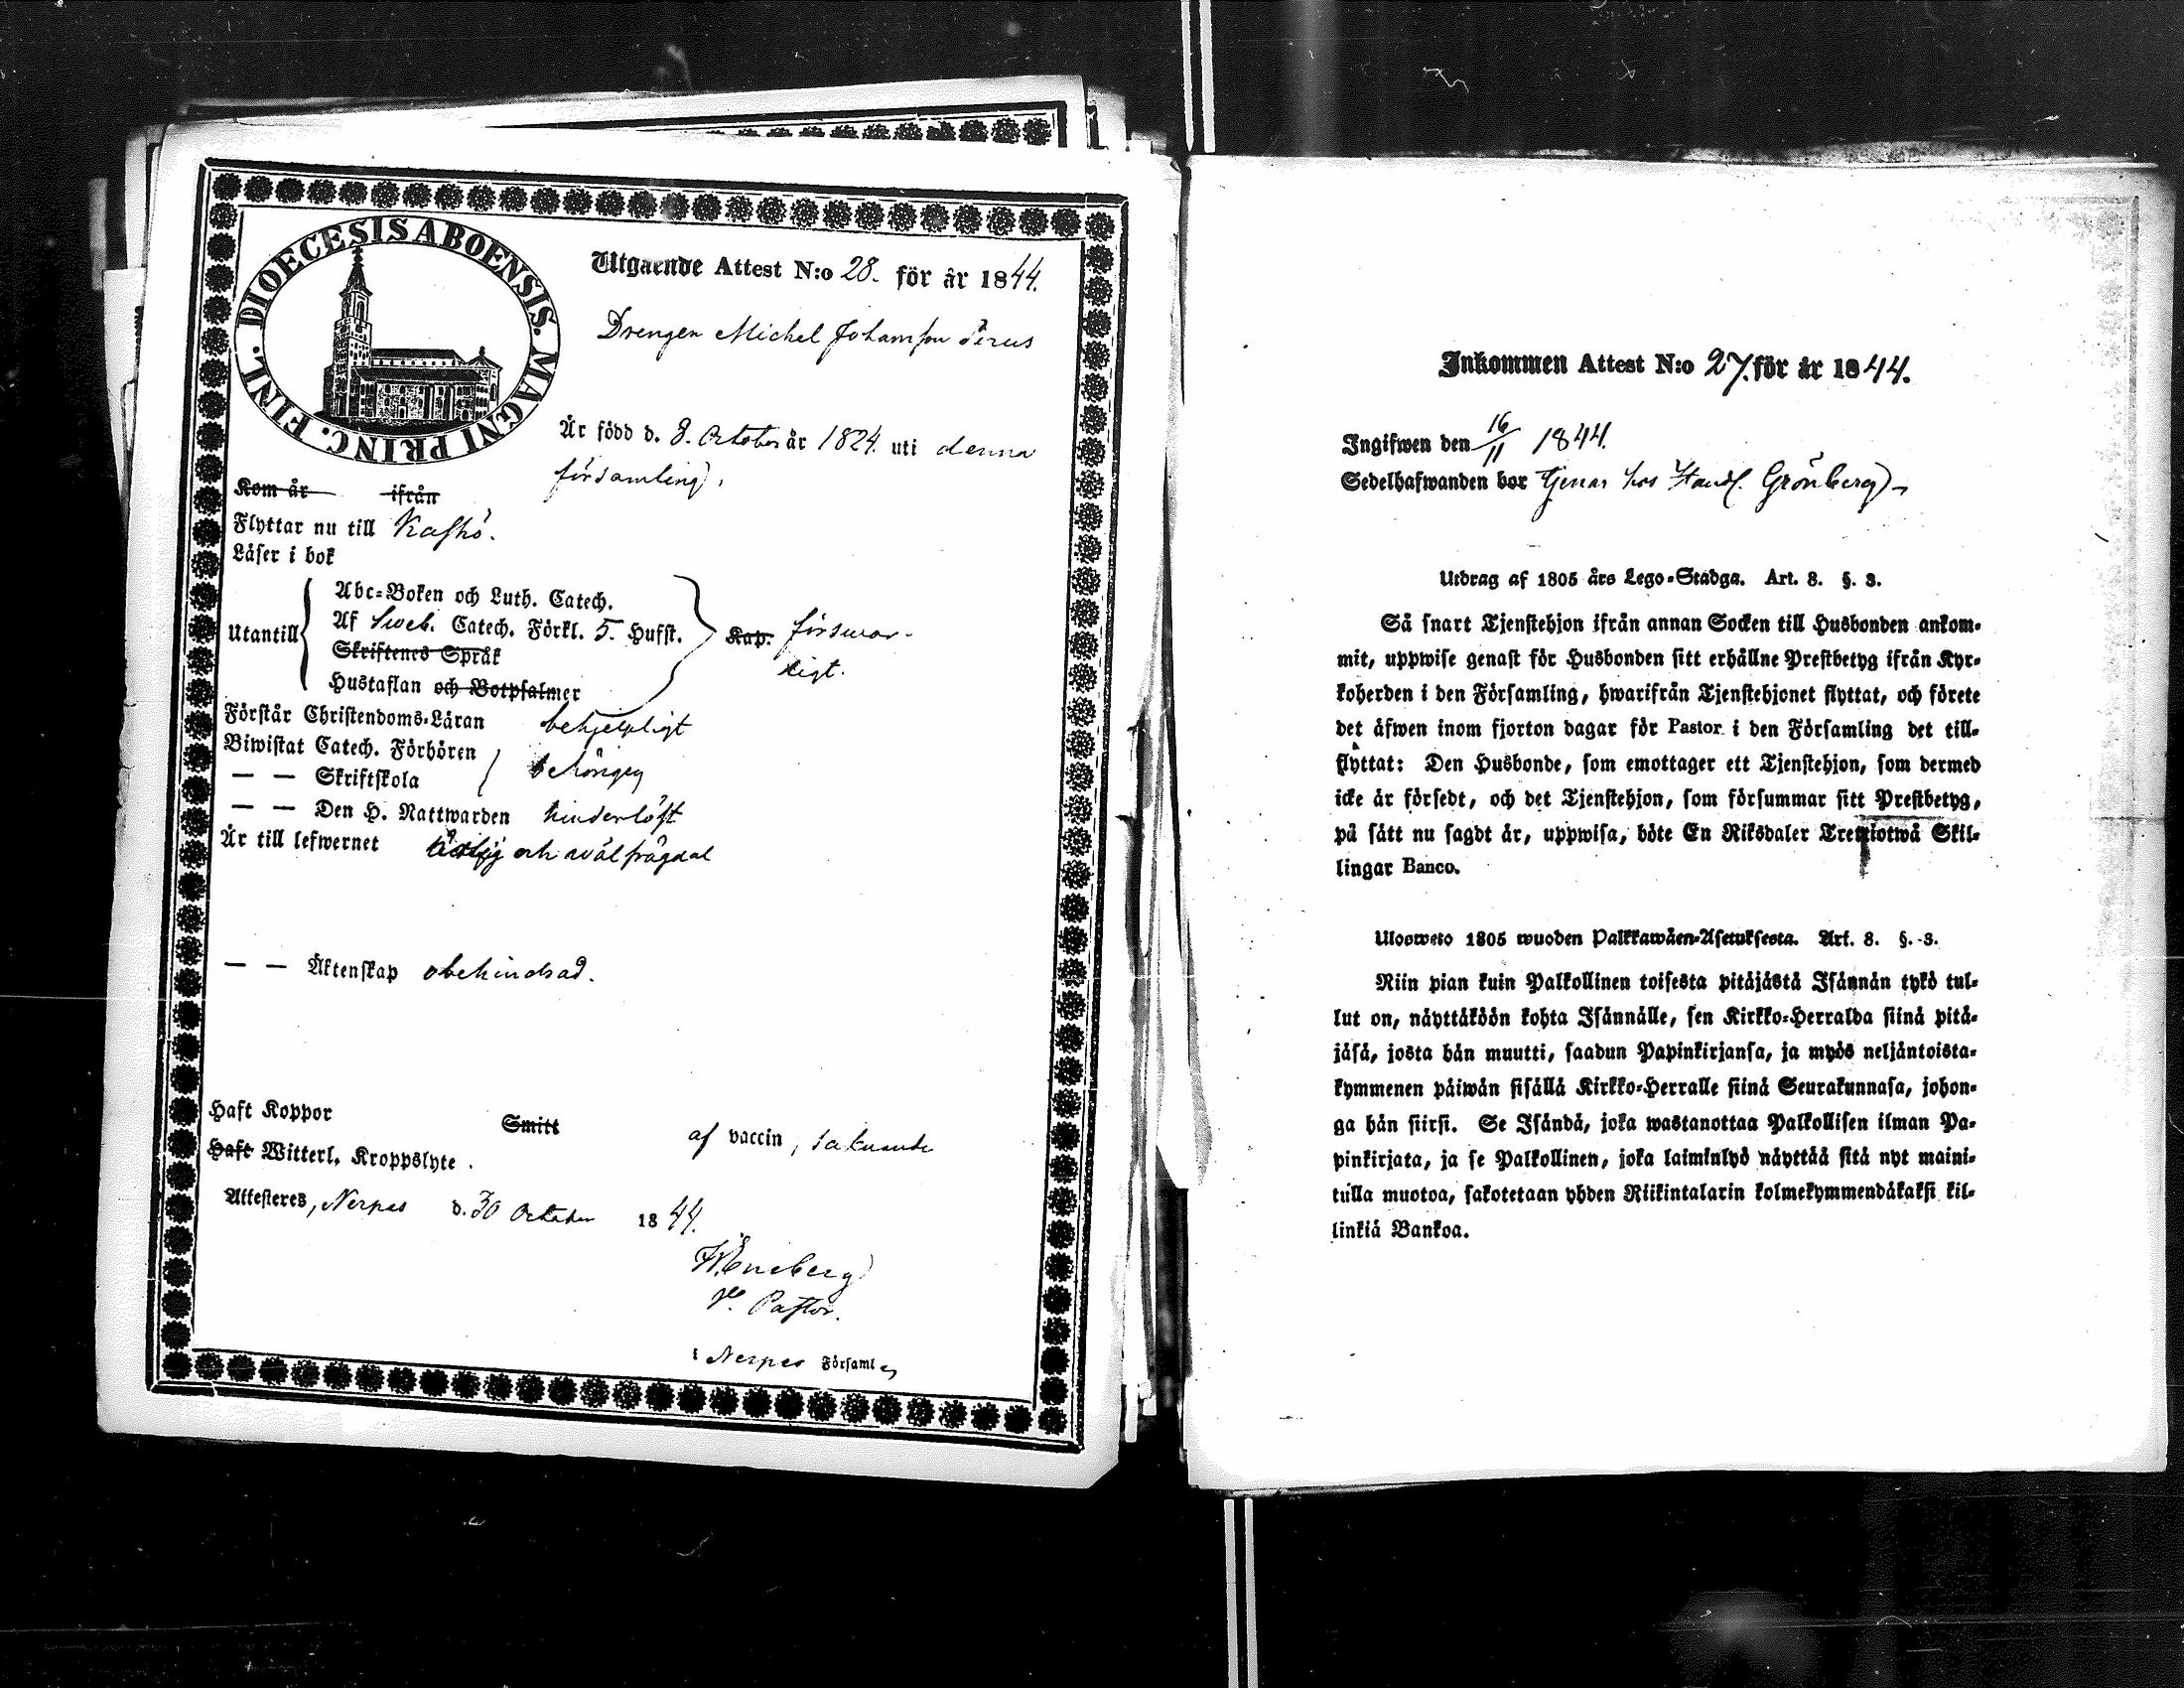 DIOECESIS ABOENSIS. MAGNI PRINC. FINL.
Utgående Attest N:o 28. för år 1844.
Drengen Michel Johansson
Är född d. 8. October år 1824. uti denna
församling.
Kom år ifrån
Flyttar nu till Kaskö.
Läser i bok
Abc-Boken och Luth. Catech.
Utantill Af Sveb. Catech. Förkl. 5. Hufst. Kap. försvar-
ligt.
Skriftenes Språk
Hustaflan och Botpsalmer
Förstår Christendoms-Läran behjelpligt
Biwistat Catech. Förhören
— — Skriftskola
— — Den H. Nattwarden hinderlöst
Är till lefwernet och wälfrägdad
— — Äktenskap obehindrad.
Haft Koppor Smitt af vaccin, saknande
Haft Witterl. Kroppslyte.
Attesteres, Nerpes d. 30 October 1844.
Pastor.
i Nerpes Församl
Inkommen Attest N:o 27. för år 1844.
Ingifwen den 16/11 1844.
Sedelhafwanden bor tjenar hos Handl. Grönberg
Utdrag af 1805 års Lego-Stadga. Art. 8. §. 3.
Så snart Tjenstehjon ifrån annan Socken till Husbonden ankom-
mit, uppwise genast för Husbonden sitt erhållne Prestbetyg ifrån Kyr-
koherden i den Församling, hwarifrån Tjenstehjonet flyttat, och förete
det äfwen inom fjorton dagar för Pastor i den Församling det till-
flyttat: Den Husbonde, som emottager ett Tjenstehjon, som dermed
icke är försedt, och det Tjenstehjon, som försummar sitt Prestbetyg,
på sätt nu sagdt är, uppwisa, böte En Riksdaler Trettiotwå Skil-
lingar Banco.
Ulosweto 1805 wuoden Palkkawäen-Asetuksesta. Art. 8. §. 3.
Niin pian kuin Palkollinen toisesta pitäjästä Isännän tykö tul-
lut on, näyttäköön kohta Isännälle, sen Kirkko-Herralda siinä pitä-
jäsä, josta hän muutti, saadun Papinkirjansa, ja myös neljäntoista-
kymmenen päiwän sisällä Kirkko-Herralle siinä Seurakunnasa, johon-
ga hän siirsi. Se Isändä, joka wastanottaa Palkollisen ilman Pa-
pinkirjata, ja se Palkollinen, joka laiminlyö näyttää sitä nyt maini-
tulla muotoa, sakotetaan yhden Riikintalarin kolmekymmendäkaksi kil-
linkiä Bankoa.